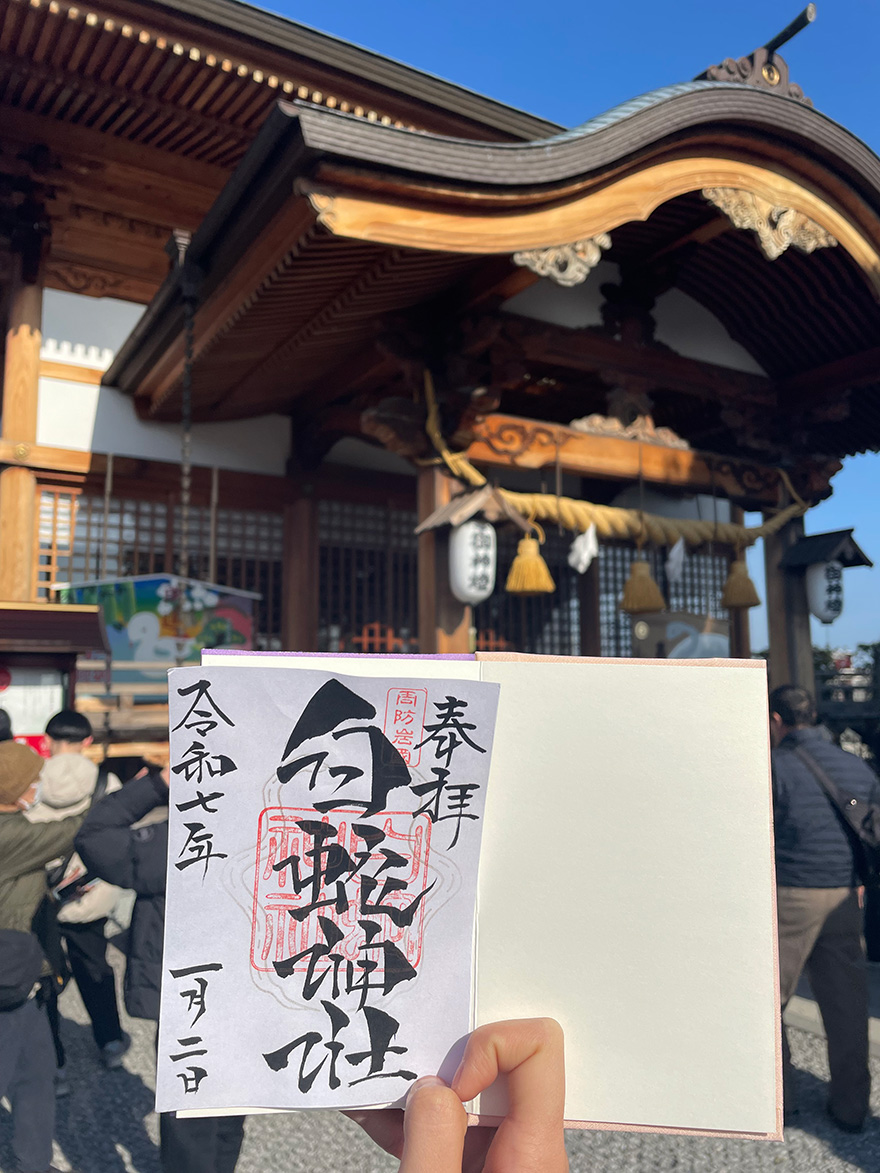 奉拝
周防岩国
白蛇神社
令和七年
一月二日
御神燈
御神燈